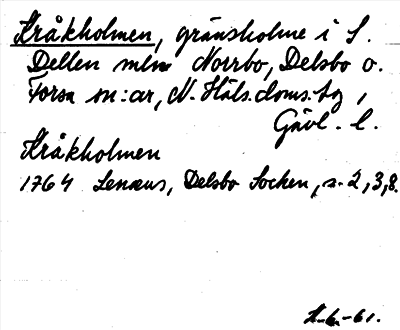 Kråkholmen, gränsholme i S.
Dellen mlm Norrbo, Delsbo o.
Forsa sn:ar, N. Häls. doms.bg,
Gävl. l.
Kråkholmen
1764 Lenæus, Delsbo Socken, s. 2, 3, 8.